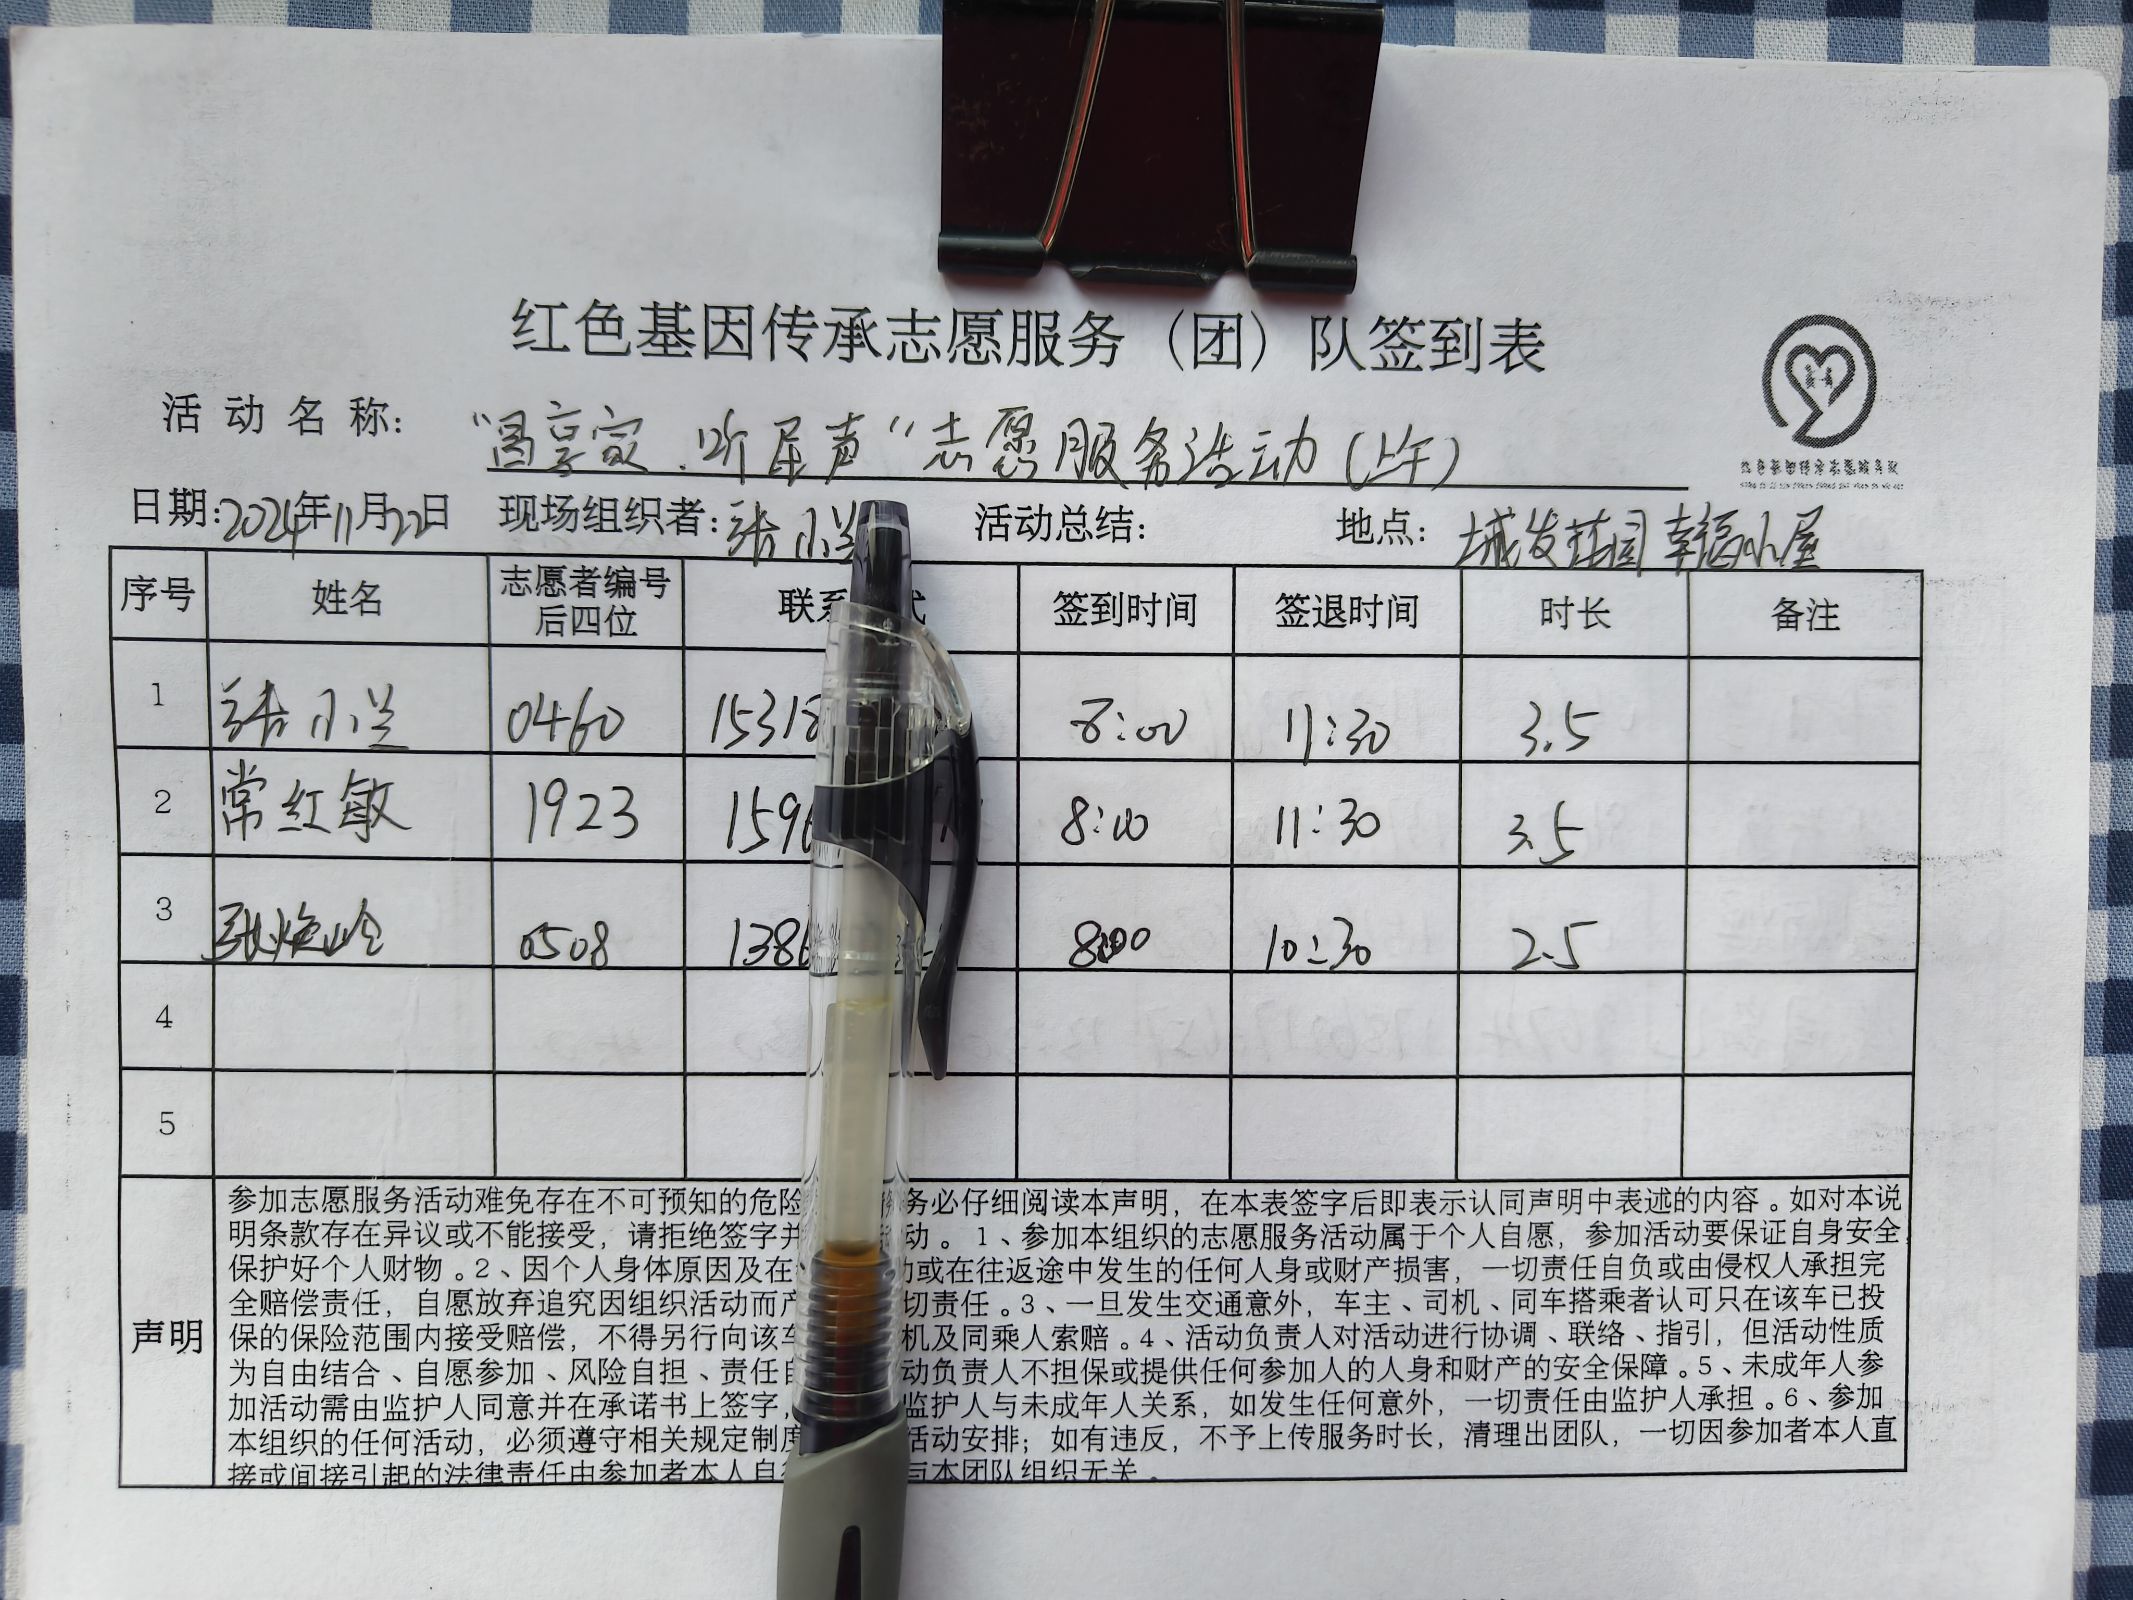 红色基因传承志愿服务（团）队签到表
活动名称: 志愿服务活动(上午)
日期:2024年11月22日 现场组织者:张小兰 活动总结: 地点: 城发花园幸福小屋
序号 姓名 志愿者编号后四位 联系 式 签到时间 签退时间 时长 备注
1 张小兰 0460 15318 8:00 11:30 3.5
2 常红敏 1923 159 8:00 11:30 3.5
3 0508 138 8:00 10:30 2.5
4
5
声明
参加志愿服务活动难免存在不可预知的危险 务必仔细阅读本声明，在本表签字后即表示认同声明中表述的内容。如对本说
明条款存在异议或不能接受，请拒绝签字并 动。1、参加本组织的志愿服务活动属于个人自愿，参加活动要保证自身安全
保护好个人财物。2、因个人身体原因及在 或在往返途中发生的任何人身或财产损害，一切责任自负或由侵权人承担完
全赔偿责任，自愿放弃追究因组织活动而产 切责任。3、一旦发生交通意外，车主、司机、同车搭乘者认可只在该车已投
保的保险范围内接受赔偿，不得另行向该车 机及同乘人索赔。4、活动负责人对活动进行协调、联络、指引，但活动性质
为自由结合、自愿参加、风险自担、责任自 动负责人不担保或提供任何参加人的人身和财产的安全保障。5、未成年人参
加活动需由监护人同意并在承诺书上签字， 监护人与未成年人关系，如发生任何意外，一切责任由监护人承担。6、参加
本组织的任何活动，必须遵守相关规定制度 活动安排；如有违反，不予上传服务时长，清理出团队，一切因参加者本人直
接或间接引起的法律责任由参加者本人自 与本团队组织无关。